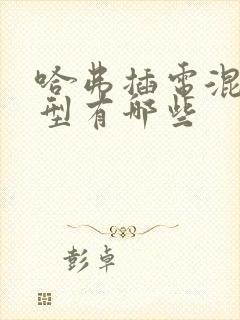 哈弗插电混
型有哪些
彭卓